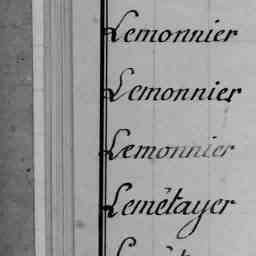 Lemonnier
Lemonnier
Lemonnier
Lemétayer